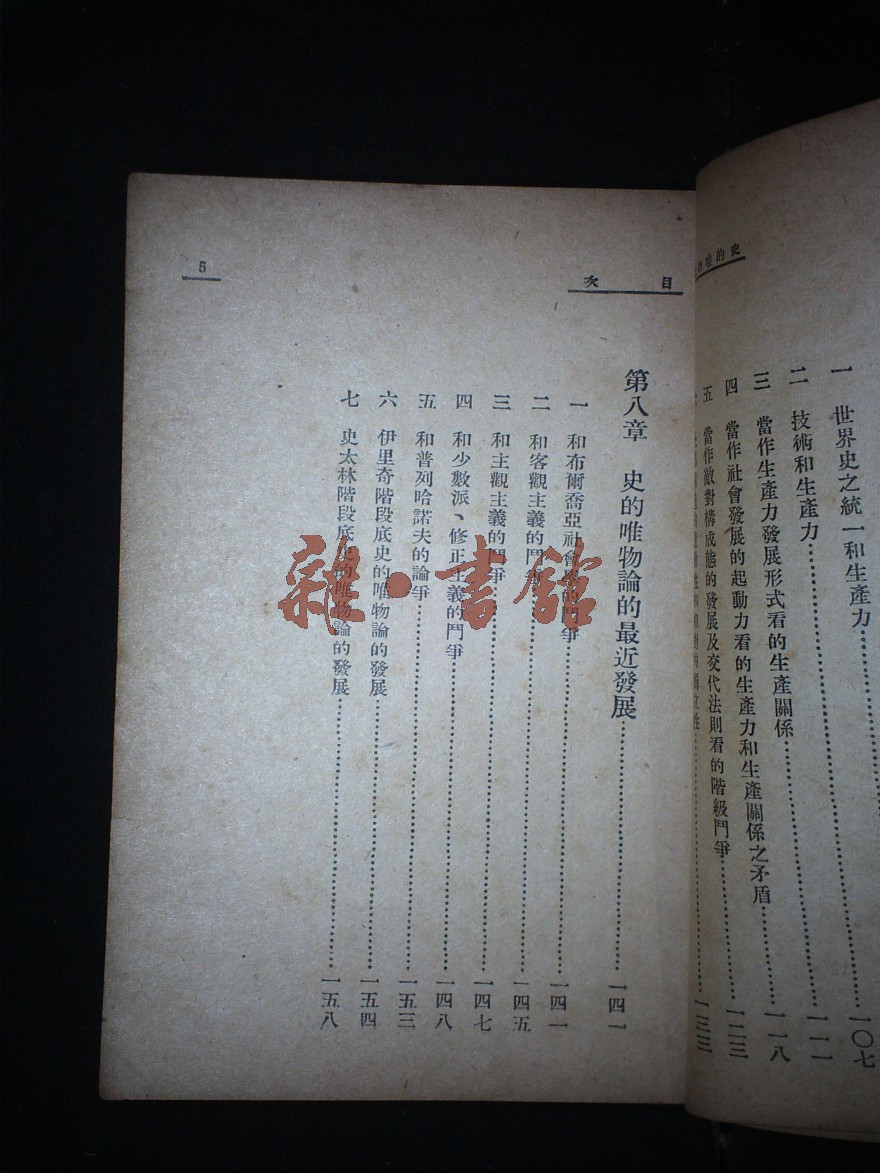 史的唯
一　世界史之統一和生產力……一〇七
二　技術和生產力……一一一
三　當作生產力發展形式看的生產關係……一一八
四　當作社會發展的起動力看的生產力和生產關係之矛盾……一二三
五　當作敵對構成態的發展及交代法則看的階級鬥爭……一三三
目次
5
第八章　史的唯物論的最近發展……一四一
一　和布爾喬亞社會學的鬥爭……一四一
二　和客觀主義的鬥爭……一四五
三　和主觀主義的鬥爭……一四七
四　和少數派、修正主義的鬥爭……一四八
五　和普列哈諾夫的論爭……一五三
六　伊里奇階段底史的唯物論的發展……一五四
七　史太林階段底史的唯物論的發展……一五八
雜·書館